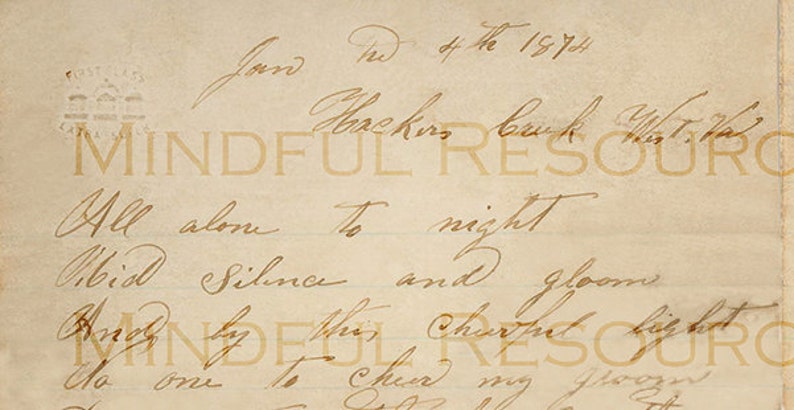 Jan the 4th 1874
FIRST CLASS
EXTRA SUPER
Hackers Creek West. Va
MINDFUL RESOURC
All alone to night
Mid Silence and gloom
And by this cheerful light
MINDFUL RESOURC
No one to cheer my gloom